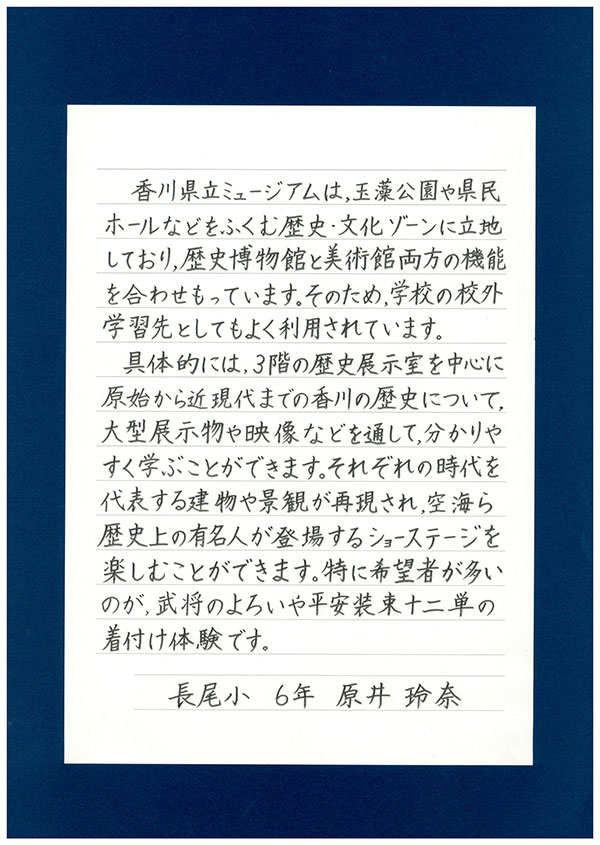 香川県立ミュージアムは,玉藻公園や県民
ホールなどをふくむ歴史・文化ゾーンに立地
しており,歴史博物館と美術館両方の機能
を合わせもっています。そのため,学校の校外
学習先としてもよく利用されています。
具体的には,3階の歴史展示室を中心に
原始から近現代までの香川の歴史について,
大型展示物や映像などを通して,分かりや
すく学ぶことができます。それぞれの時代を
代表する建物や景観が再現され,空海ら
歴史上の有名人が登場するショーステージを
楽しむことができます。特に希望者が多い
のが,武将のよろいや平安装束十二単の
着付け体験です。
長尾小 6年 原井 玲奈